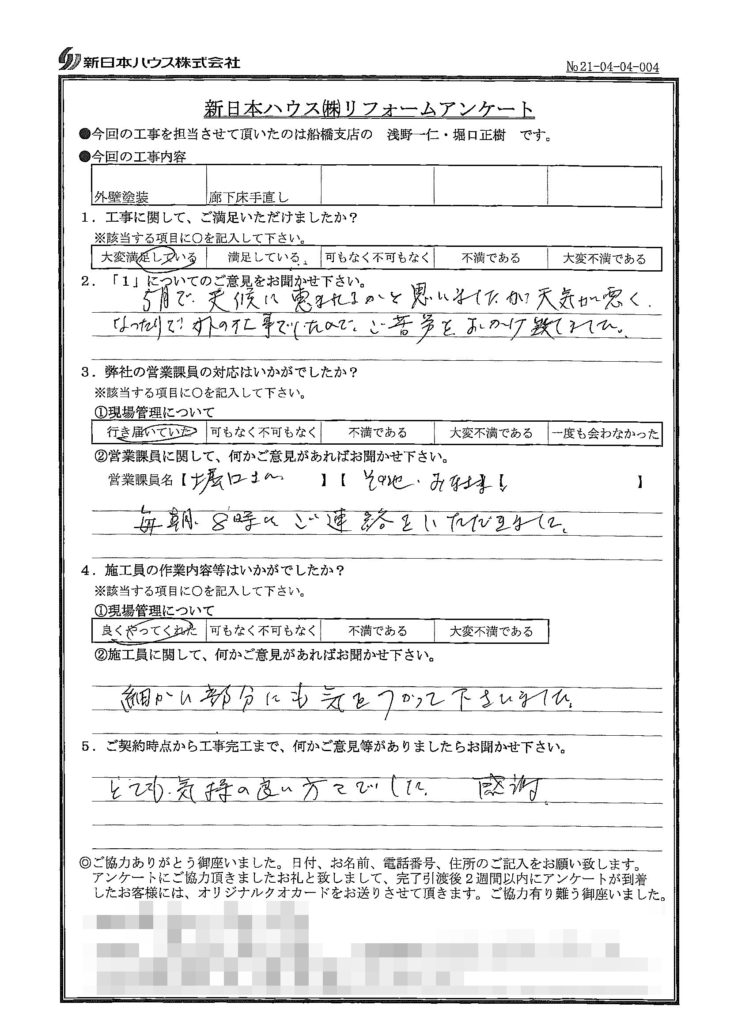 新日本ハウス株式会社
№21-04-04-004
新日本ハウス㈱リフォームアンケート
●今回の工事を担当させて頂いたのは船橋支店の 浅野一仁・堀口正樹 です。
●今回の工事内容
外壁塗装 廊下床手直し
1．工事に関して、ご満足いただけましたか？
※該当する項目に○を記入して下さい。
大変満足している 満足している。 可もなく不可もなく 不満である 大変不満である
2．「1」についてのご意見をお聞かせ下さい。
5月で、天候に恵まれるかと思いましたが、天気が悪く、
なったりで、外の工事でしたので、ご苦労をおかけ致しました。
3．弊社の営業課員の対応はいかがでしたか？
※該当する項目に○を記入して下さい。
①現場管理について
行き届いていた 可もなく不可もなく 不満である 大変不満である 一度も会わなかった
②営業課員に関して、何かご意見があればお聞かせ下さい。
営業課員名【堀口さん 】【 その他・みなさま 】
毎朝、8時にご連絡をいただきました。
4．施工員の作業内容等はいかがでしたか？
※該当する項目に○を記入して下さい。
①現場管理について
良くやってくれた 可もなく不可もなく 不満である 大変不満である
②施工員に関して、何かご意見があればお聞かせ下さい。
細かい部分にも気をつかって下さいました。
5．ご契約時点から工事完工まで、何かご意見等がありましたらお聞かせ下さい。
とても、気持の良い方々でした。 感謝。
◎ご協力ありがとう御座いました。日付、お名前、電話番号、住所のご記入をお願い致します。
アンケートにご協力頂きましたお礼と致しまして、完了引渡後２週間以内にアンケートが到着
したお客様には、オリジナルクオカードをお送りさせて頂きます。ご協力有り難う御座いました。